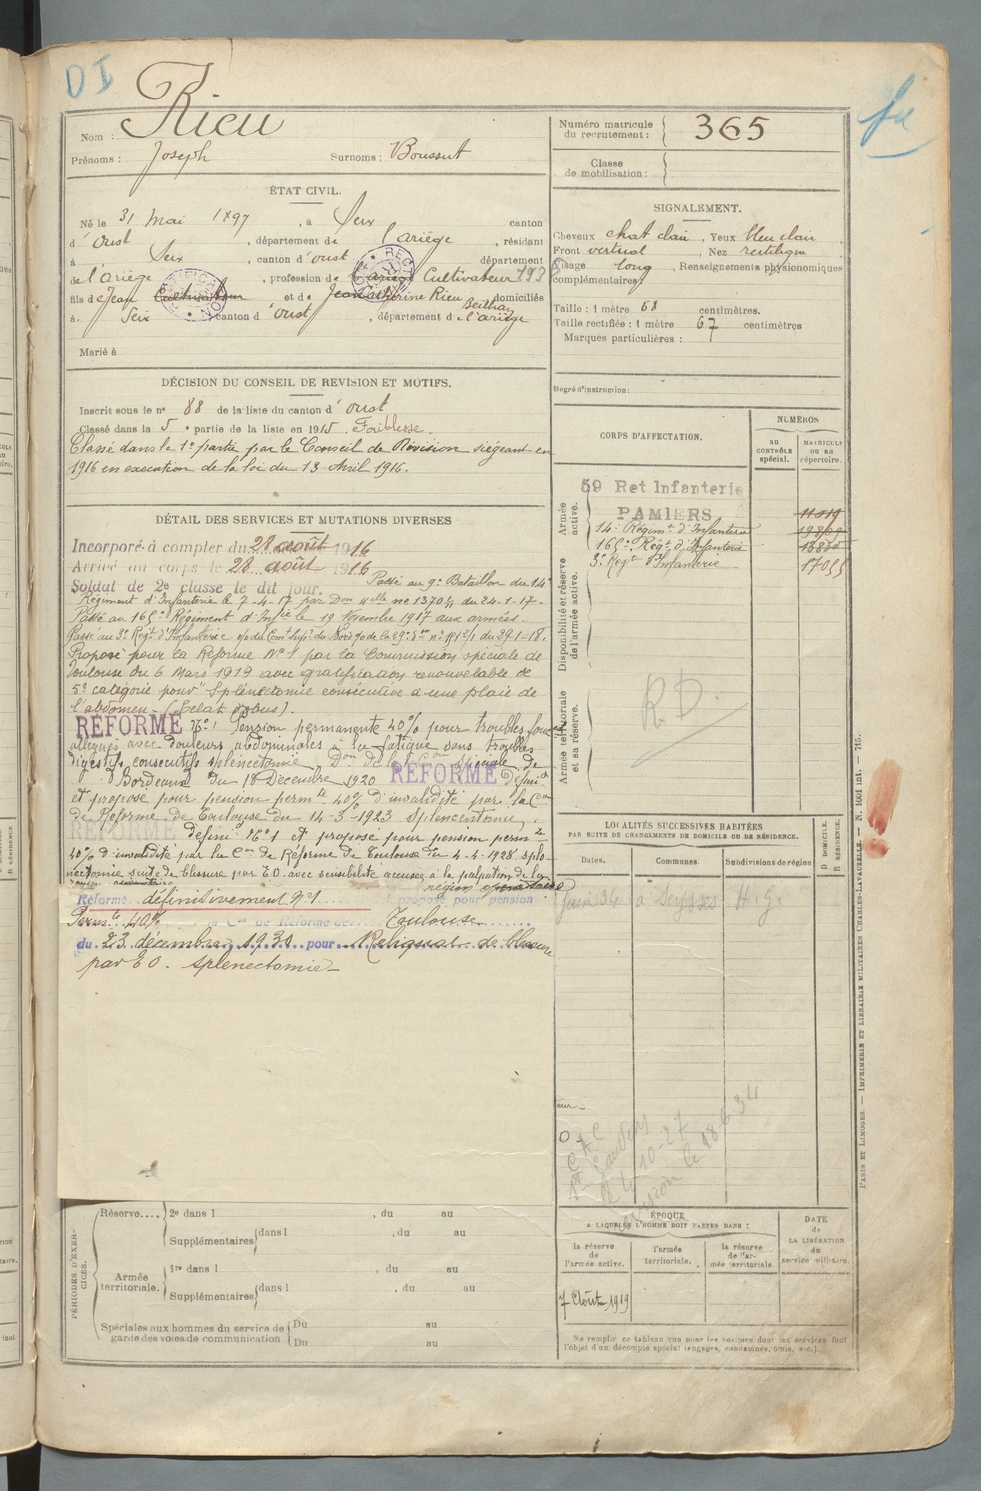 DI
Nom : Rieu
Prénoms : Joseph Surnoms : Boussut
Numéro matricule du recrutement : 365
Classe de mobilisation :
ÉTAT CIVIL.
Né le 31 Mai 1897, à Seix canton
d'Oust, département de l'ariège, résidant
à Seix, canton d'oust département
de l'Ariège, profession de Cultivateur
fils de Jean Cultivateur et de Jean Catherine Rieu domiciliés
à Seix canton d'oust, département de l'ariège
Marié à
SIGNALEMENT.
Cheveux chat clair, Yeux bleu clair
Front vertical, Nez rectiligne
Visage long, Renseignements physionomiques
complémentaires :
Taille : 1 mètre 68 centimètres.
Taille rectifiée : 1 mètre 67 centimètres
Marques particulières :
Degré d'instruction :
DÉCISION DU CONSEIL DE REVISION ET MOTIFS.
Inscrit sous le n° 88 de la liste du canton d'oust
Classé dans la 5e partie de la liste en 1915. Faiblesse.
Classé dans la 1e partie par le Conseil de Révision siégeant en
1916 en execution de la loi du 13 Avril 1916.
DÉTAIL DES SERVICES ET MUTATIONS DIVERSES
Incorporé à compter du 28 août 1916
Arrivé au corps le 28 août 1916
Soldat de 2e classe le dit jour. Passé au 9e Bataillon du 14e
Régiment d'Infanterie le 7-4-17 par Don du 24-1-17-
Passé au 165e Régiment d'Infie le 19 Novembre 1917 aux armées.
Passé au 3e Regt d'Infanterie du 29-1-18.
Proposé pour la Réforme N°1 par la Commission spéciale de
Toulouse du 6 Mars 1919 avec gratification renouvelable de
5e catégorie pour "Splénectomie consécutive à une plaie de
l'abdomen - (Eclat d'obus).
RÉFORMÉ N°1 Pension permanente 40% pour troubles
allégués avec douleurs abdominales à la fatigue sans troubles
digestifs, consécutifs splénectomie. Don de la Con spéciale de
Bordeaux du 18 Décembre 1920 RÉFORMÉ
et proposé pour pension permte 40% d'invalidité par la Con
de Réforme de Toulouse du 14-3-1923 splénectomie.
RÉFORMÉ définif N°1 et proposé pour pension perm
40% d'invalidité par la Con de Réforme de Toulouse du 4-4-1928 splé-
nectomie suite de blessure par EO avec sensibilité accusée à la palpation de la
région opératoire
Réformé définitivement n°1 et proposé pour pension
Permte 40% la Con de Réforme de Toulouse
du 23 décembre 1930 pour Reliquat de blessure
par EO. splenectomie
CORPS D'AFFECTATION.
NUMÉROS
au CONTRÔLE spécial.
MATRICULE ou au répertoire.
Armée active.
59 Ret Infanterie
PAMIERS
14e Régimt d'Infanterie
165e Régt d'Infanterie
3e Regt d'Infanterie 17055
Disponibilité et réserve de l'armée active.
Armée territoriale et sa réserve.
R.D.
LOCALITÉS SUCCESSIVES HABITÉES
PAR SUITE DE CHANGEMENTS DE DOMICILE OU DE RÉSIDENCE.
Dates. Communes. Subdivisions de région
D DOMICILE.
R RÉSIDENCE.
à Seysses H.G.
PÉRIODES D'EXERCICES.
Réserve.... 2e dans l , du au
Supplémentaires dans l , du au
Armée territoriale. 1re dans l , du au
Supplémentaires dans l , du au
Spéciales aux hommes du service de garde des voies de communication Du au
Du au
ÉPOQUE
A LAQUELLE L'HOMME DOIT PASSER DANS :
la réserve de l'armée active.
l'armée territoriale.
la réserve de l'armée territoriale
DATE de LA LIBÉRATION du service militaire.
7 Août 1919
Ne remplir ce tableau que pour les hommes dont les services font
l'objet d'un décompte spécial (engagés, condamnés, omis, etc.).
PARIS ET LIMOGES. — IMPRIMERIE ET LIBRAIRIE MILITAIRES CHARLES-LAVAUZELLE.